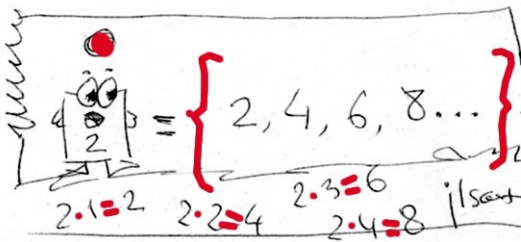 2 = { 2, 4, 6, 8... }
2·1=2 2·2=4 2·3=6 2·4=8